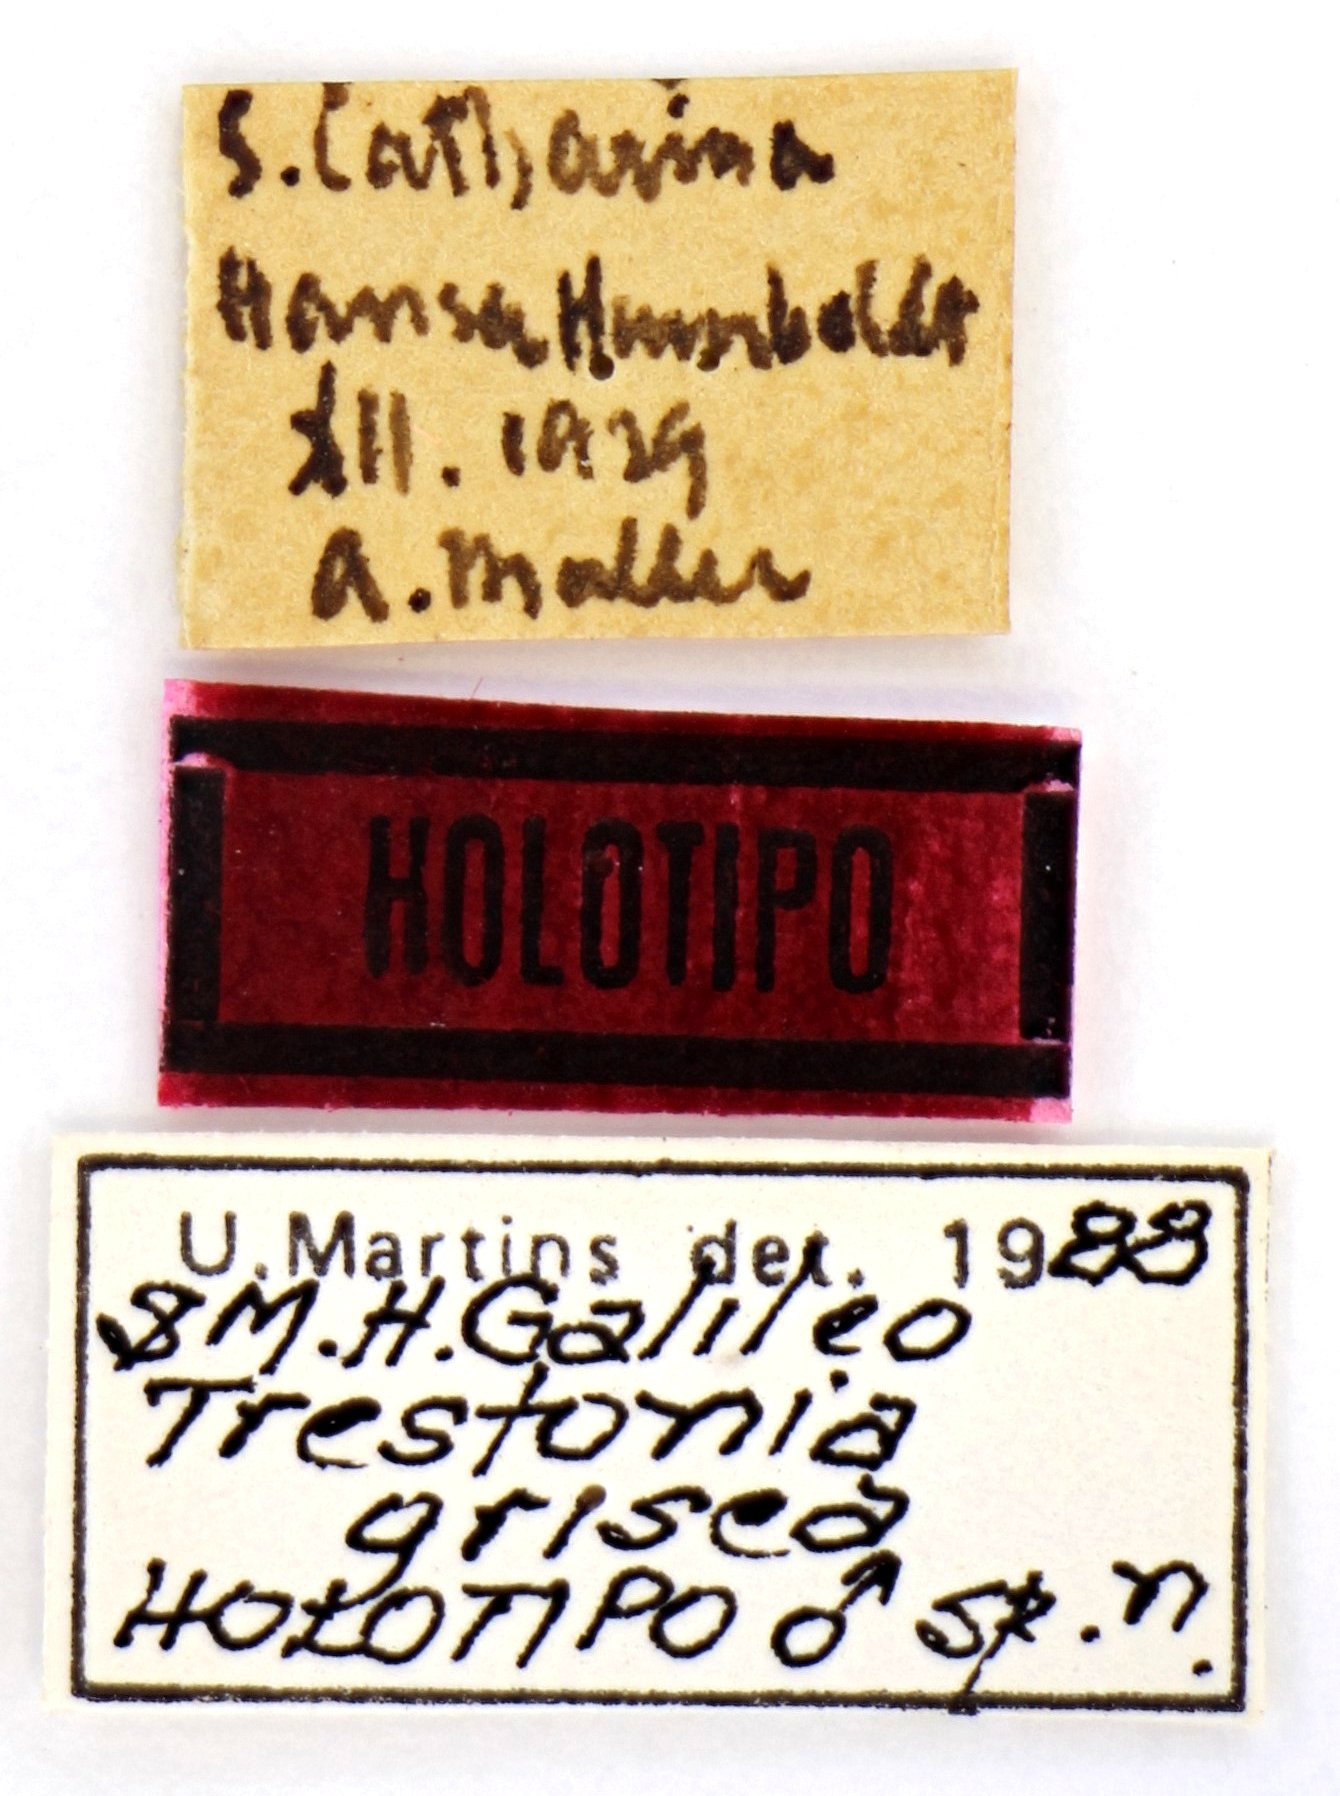 S. Catharina
Hansa Humboldt
XII. 1929
A. Maller
HOLOTIPO
U. Martins det. 1988
& M.H. Galileo
Trestonia
grisea
HOLOTIPO ♂ sp. n.